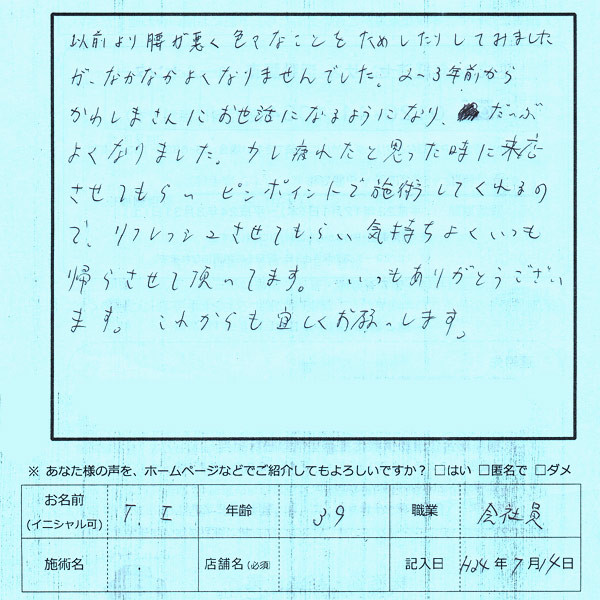 以前より腰が悪く色々なことをためしたりしてみました
が、なかなかよくなりませんでした。2〜3年前から
かわしまさんにお世話になるようになり、だいぶ
よくなりました。少し疲れたと思った時に来店
させてもらい ピンポイントで施術してくれるの
で、リフレッシュさせてもらい気持ちよくいつも
帰らせて頂いてます。 いつもありがとうござい
ます。 これからも宜しくお願いします。
※ あなた様の声を、ホームページなどでご紹介してもよろしいですか？ □はい □匿名で □ダメ
お名前(イニシャル可) T. I 年齢 39 職業 会社員
施術名 店舗名(必須) 記入日 H24年7月14日